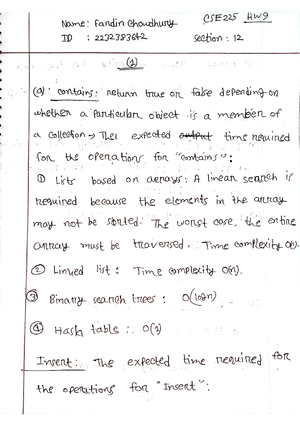 CSE225 HW9
Name: Fardin Choudhury
ID : 2232383642
section : 12
(1)
(a) contains: return true or false depending on
whether a particular object is a member of
a collection → The expected time required
for the operations for "contains":
① Lists based on arrays: A linear search is
required because the elements in the array
may not be sorted. The worst case, the entire
array must be traversed. Time complexity O(n).
② Linked list: Time complexity O(n).
③ Binary search trees: O(logn)
④ Hash table: O(1)
Insert: The expected time required for
the operations for "Insert":